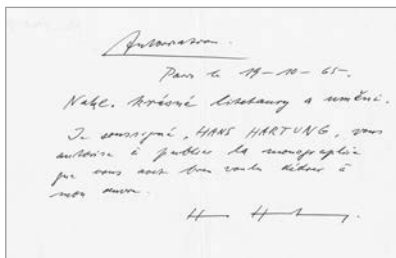 Autorisation.
Paris le 19-10-65.
Nakl. krásné literatury a umění.
Je soussigné, HANS HARTUNG, vous
autorise à publier la monographie
que vous avez bien voulu dédier à
mon œuvre.